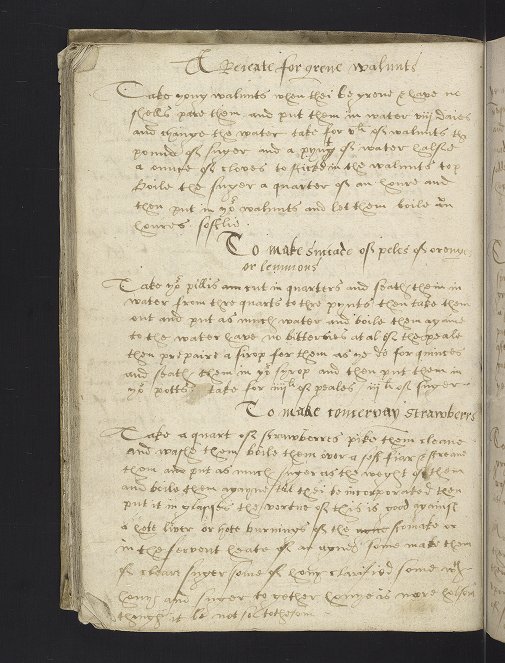 A Receate for grene walnuts
Take yong walnuts when thei be grene & have no
shells pare them and put them in water viij daies
and change the water take for of walnuts
pounde of suger and a pynt of water halfe
a ounce of cloves to sticke in the walnuts top
boile the suger a quarter of an houre and
then put in yor walnuts and let them boile an
houres softlie
To make sucade of peles of orenges
or lemmons
Take yor pillis cut in quarters and seath them in
water from thre quarts to thre pynts then take them
out and put as much water and boile them agane
to the water have no bitternes at al of the peale
then prepaire a sirop for them as ye do for quinces
and seath them in yor syrop and then put them in
yor potts take for iiij li of peales iij li of suger
To make conserva strawberes
Take a quart of strawberres pike them cleane
and washe them boile them over a soft fiar & streane
them and put as much suger as the weght of them
and boile them againe till thei be incorporated then
put it in glasses the vertue of this is good against
a hott liver or hott burnings of the stomake or
in the fervent heate of an agues some make them
of cleare suger some of hony clarified some wth
hony and suger to gether honye is more holsom
thoughe it be not so tothesom